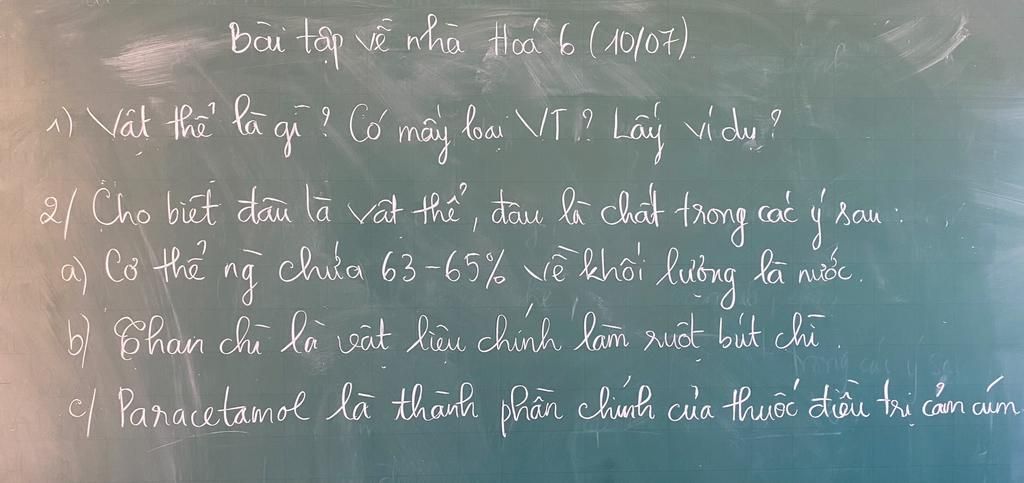 Bài tập về nhà Hoá 6 (10/07)
1) Vật thể là gì? Có mấy loại VT? Lấy ví dụ?
2/ Cho biết đâu là vật thể, đâu là chất trong các ý sau:
a) Cơ thể ng chứa 63-65% về khối lượng là nước.
b) Than chì là vật liệu chính làm ruột bút chì.
c/ Paracetamol là thành phần chính của thuốc điều trị cảm cúm.